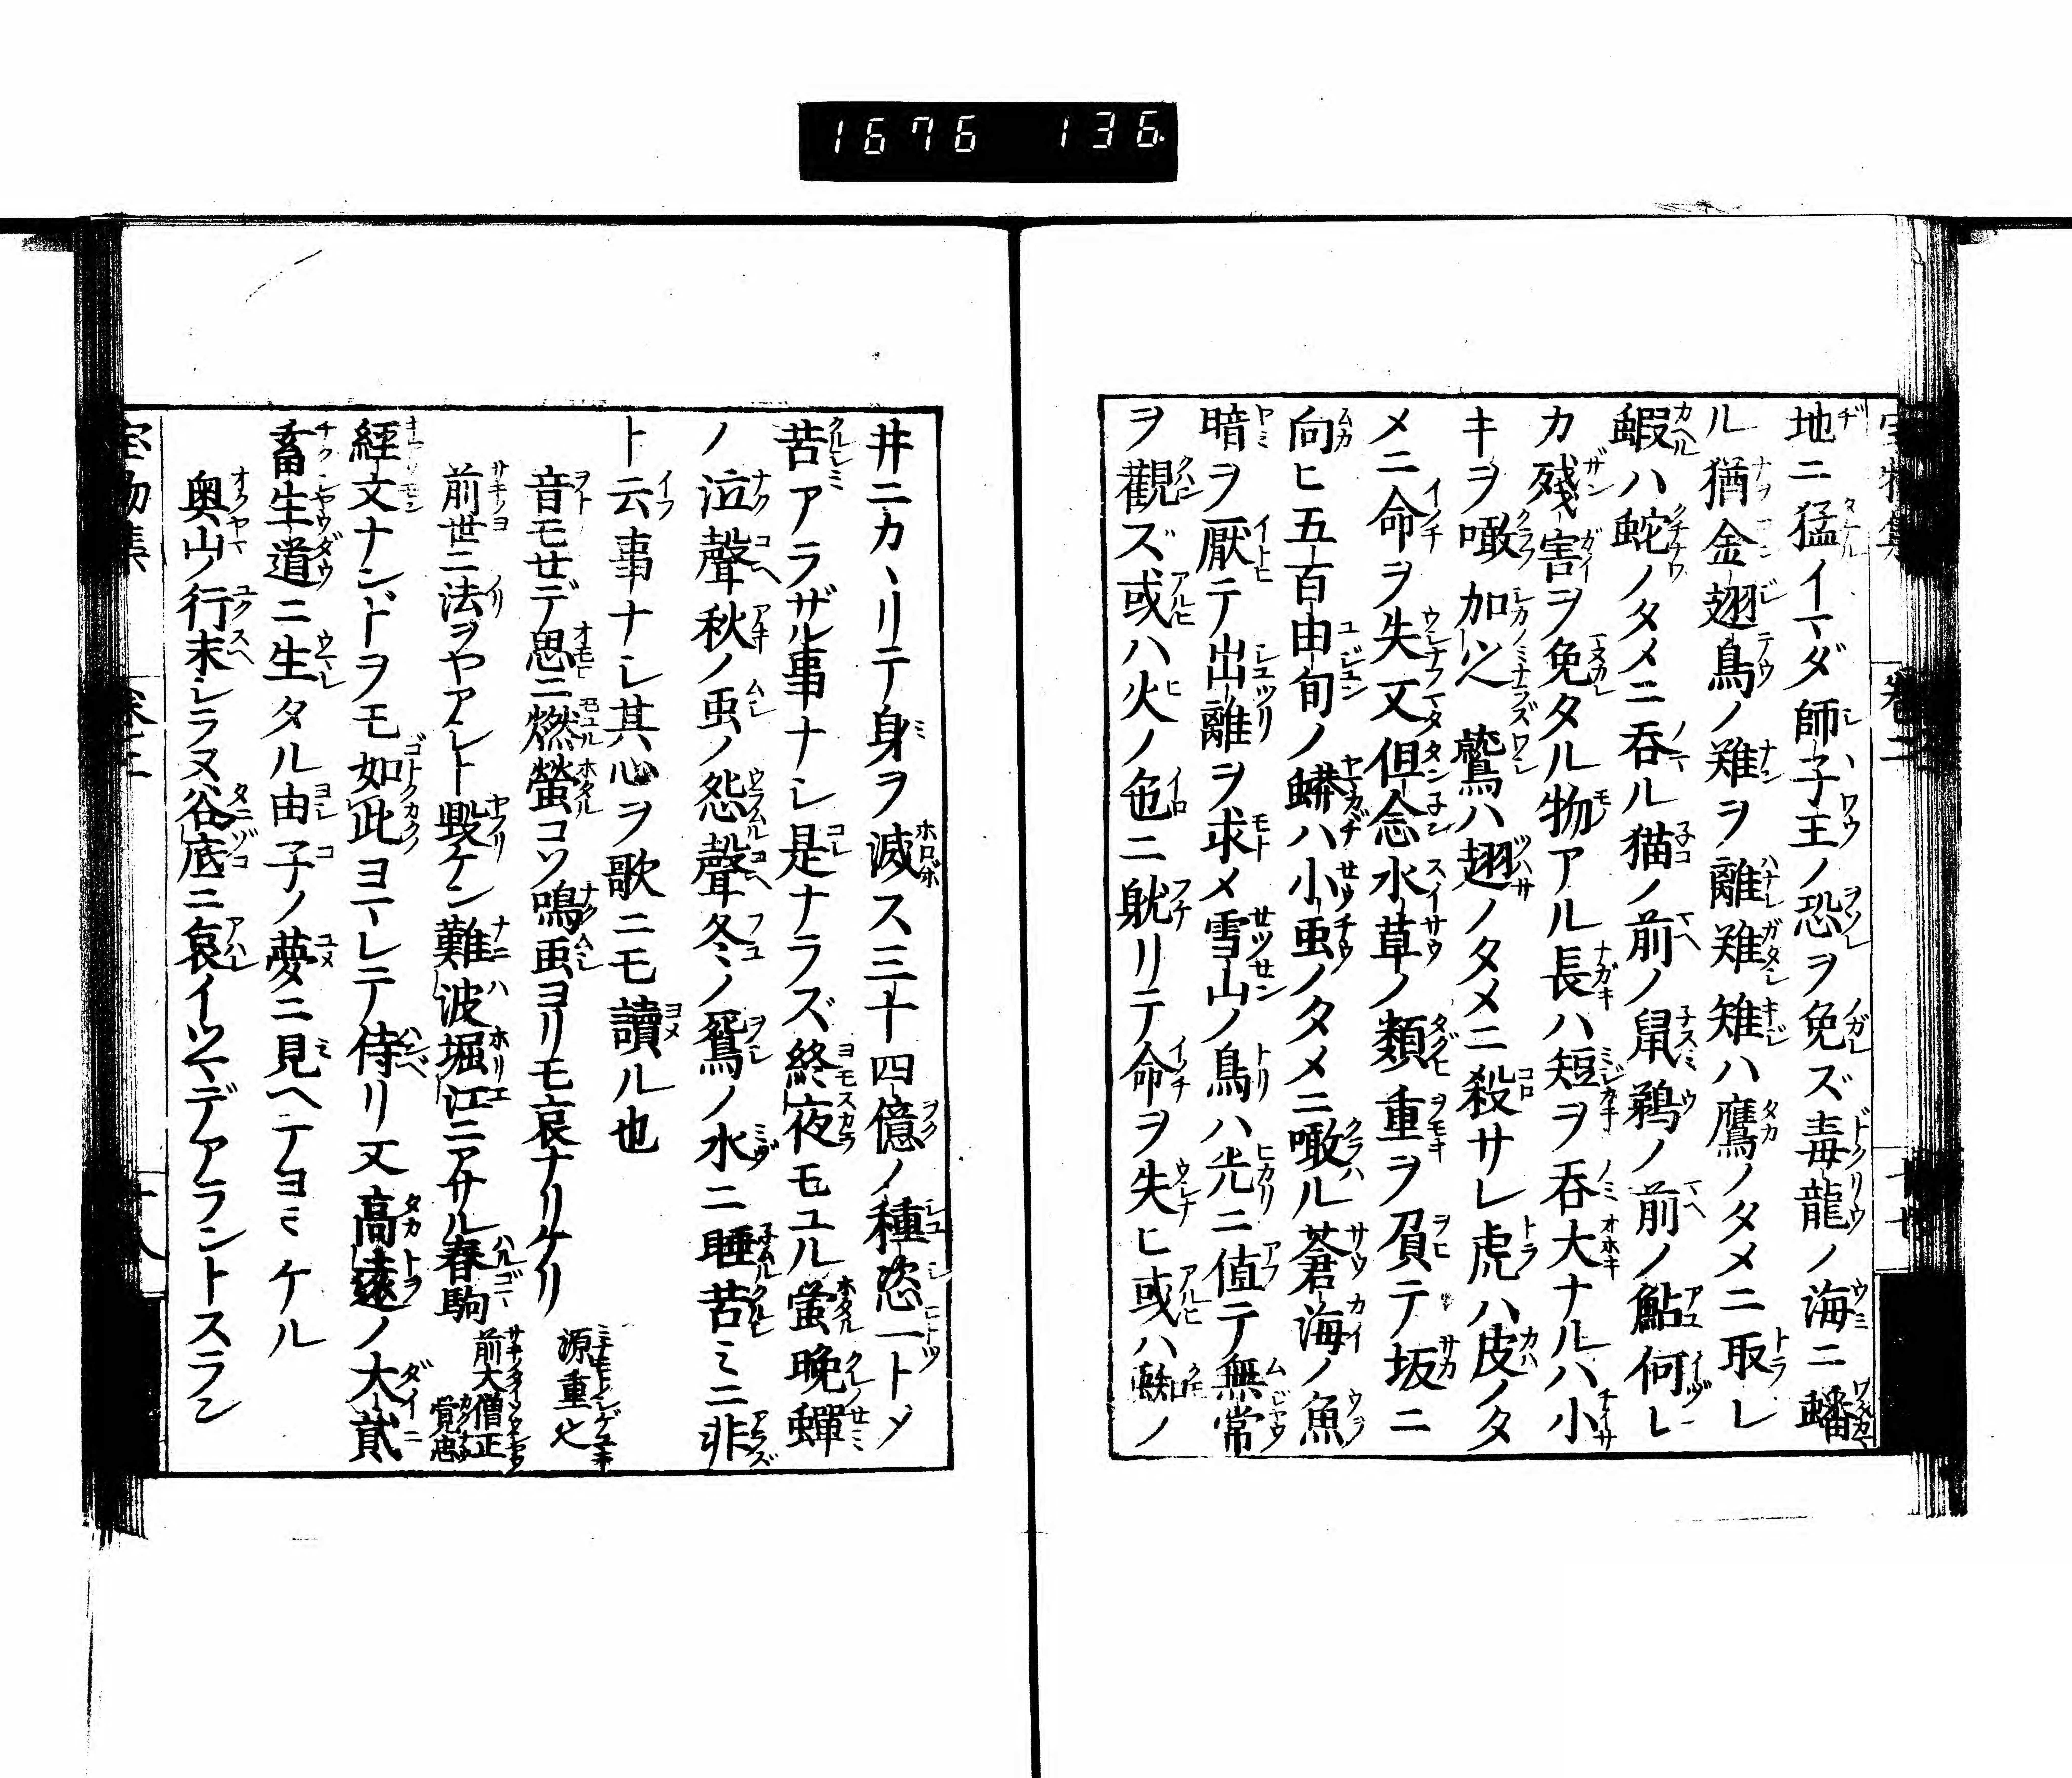 1676 136
地ニ猛イマダ師子王ノ恐ヲ免ズ毒龍ノ海ニ蟠
ル猶金翅鳥ノ難ヲ離難雉ハ鷹ノタメニ取レ
蝦ハ蛇ノタメニ呑ル猫ノ前ノ鼠鵜ノ前ノ鮎何レ
カ殘害ヲ免タル物アル長ハ短ヲ呑大ナルハ小
キヲ噉加之鷲ハ翅ノタメニ殺サレ虎ハ皮ノタ
メニ命ヲ失又但念水草ノ類重ヲ負テ坂ニ
向ヒ五百由旬ノ蟒ハ小虫ノタメニ噉ル蒼海ノ魚
暗ヲ厭テ出離ヲ求メ雪山ノ鳥ハ光ニ値テ無常
ヲ觀ズ或ハ火ノ色ニ躭リテ命ヲ失ヒ或ハ蛛ノ
井ニカヽリテ身ヲ滅ス三十四億ノ種恣一トメ
苦アラザル事ナシ是ナラズ終夜モユル螢晩蟬
ノ泣聲秋ノ虫ノ怨聲冬ノ鴛ノ水ニ睡苦ミニ非
ト云事ナシ其心ヲ歌ニモ讀ル也
音モせデ思ニ燃螢コソ鳴虫ヨリモ哀ナリケリ 源重之
前世ニ法ヲヤアシト毀ケン難波堀江ニアサル春駒 前大僧正覚忠
經文ナンドヲモ如此ヨマレテ侍リ又高遠ノ大貳
畜生道ニ生タル由子ノ夢ニ見ヘテヨミケル
奥山ノ行末シラヌ谷底ニ哀イツマデアラントスラン